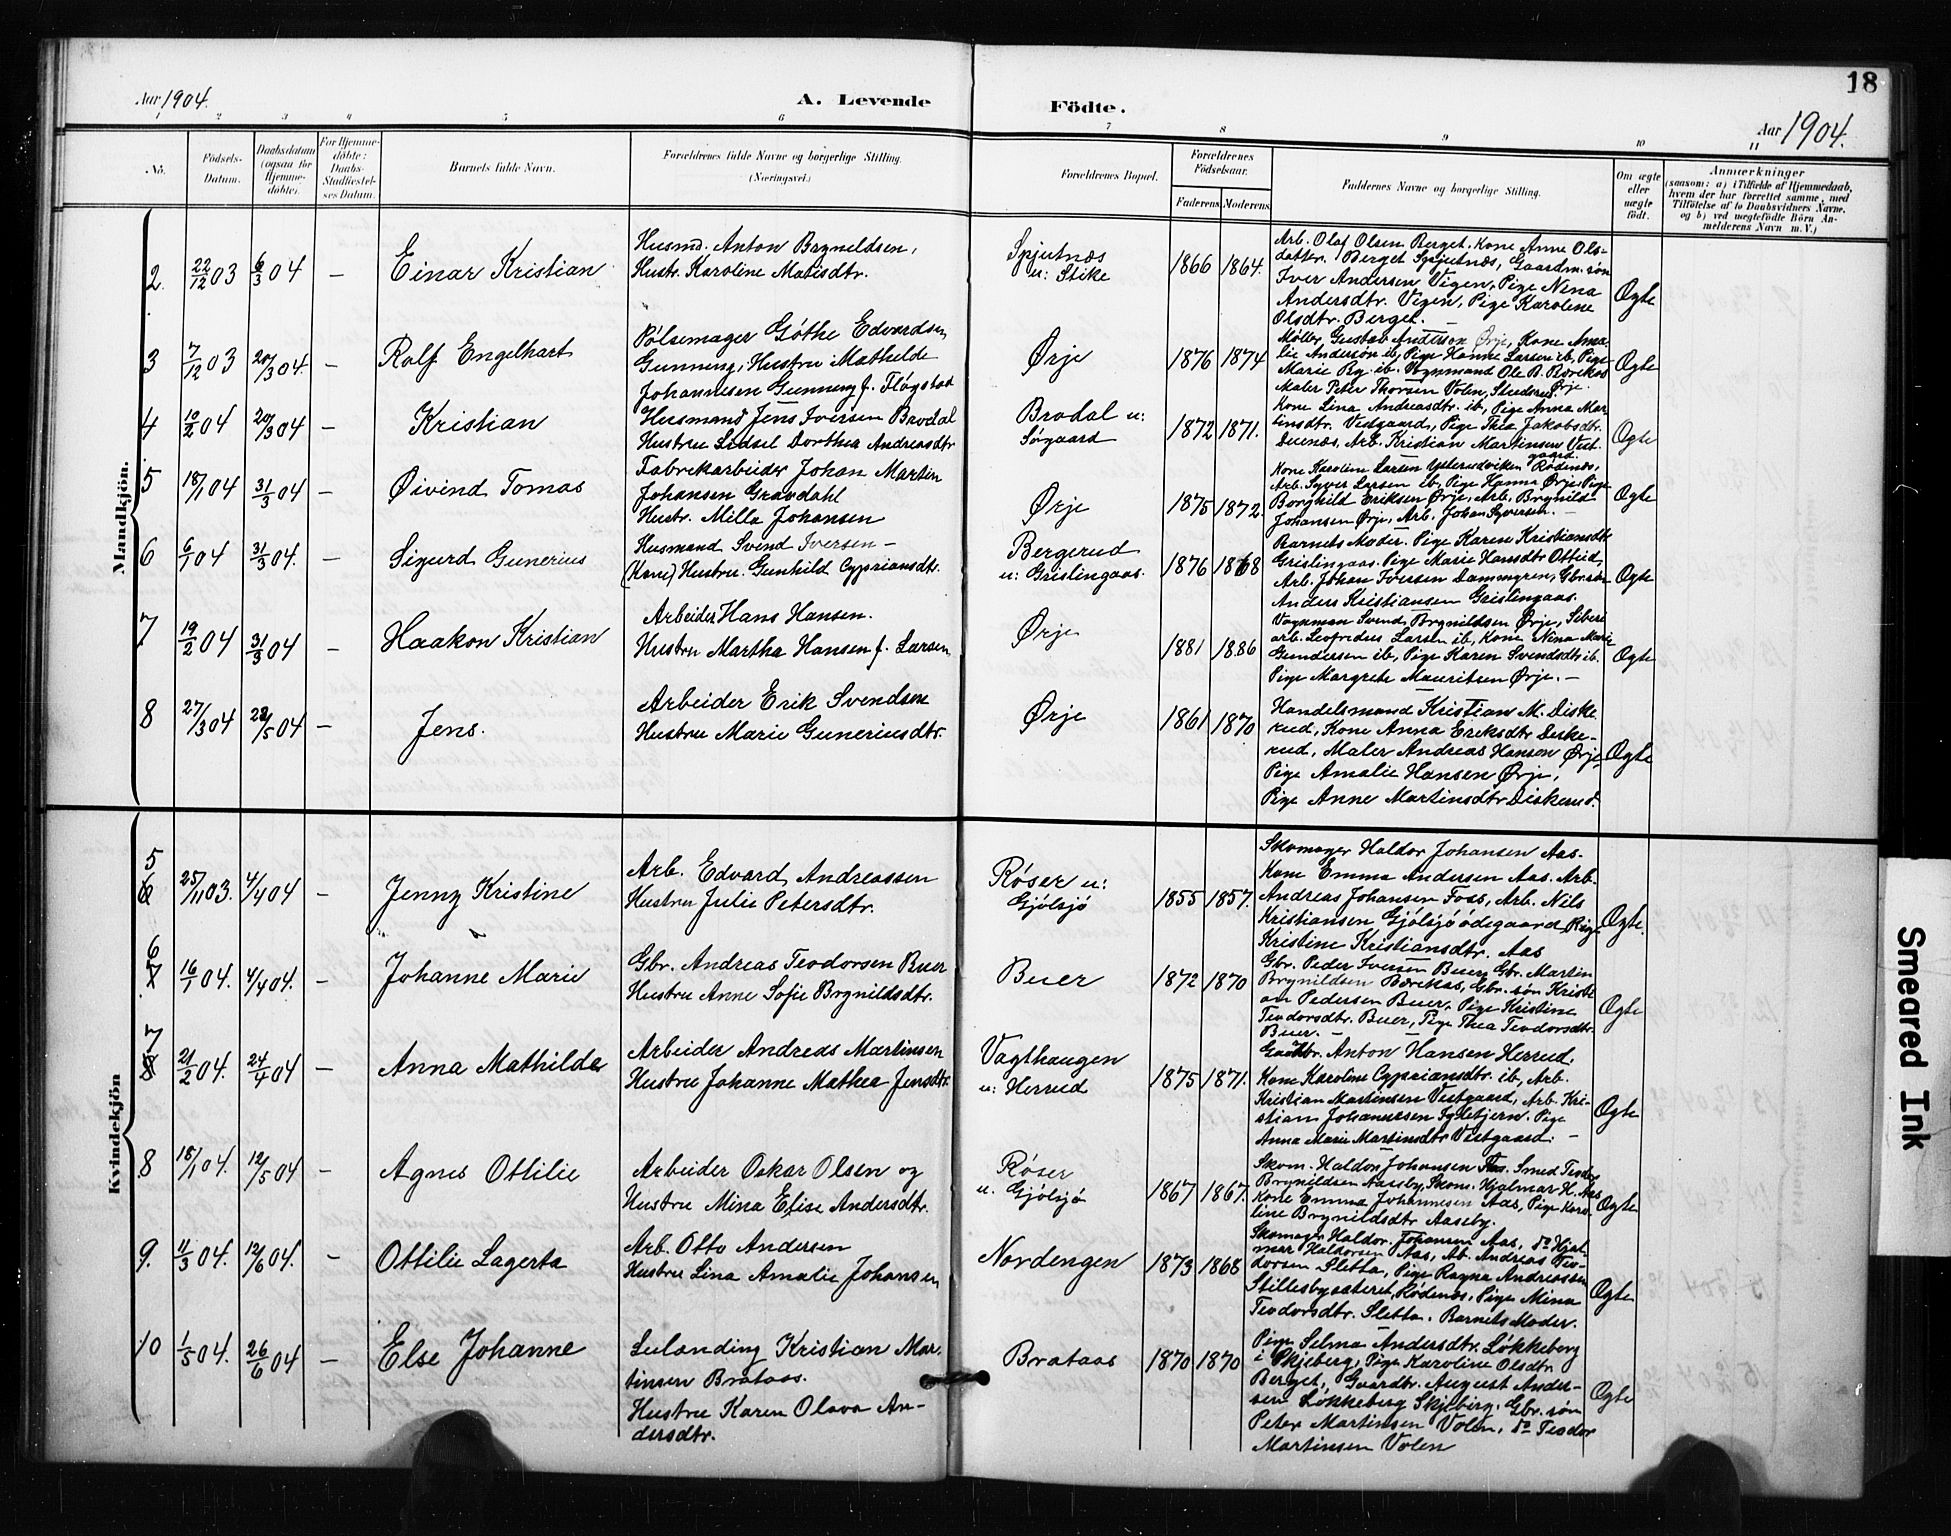 18
Aar 1904. A. Levende Födte. Aar 1904.
1 2 3 4 5 6 7 8 9 10 11
No. Födsels-Datum. Daabsdatum (ogsaa for Hjemme-döbte). For Hjemme-döbte: Daabs-Stadfæstel-ses Datum. Barnets fulde Navn. Forældrenes fulde Navne og borgerlige Stilling. (Næringsvei.) Forældrenes Bopæl. Forældrenes Födselsaar. Faderens. Moderens. Faddernes Navne og borgerlige Stilling. Om ægte eller uægte födt. Anmærkninger
(saasom: a) i Tilfælde af Hjemmedaab,
hvem der har forrettet samme, med
Tilföielse af to Daabsvidners Navne,
og b) ved uægtefödte Börn An-
melderens Navn m. V.)
Mandkjön.
2. 22/12 03 6/3 04 – Einar Kristian
Husmd. Anton Brynildsen,
Hustr. Karoline Matisdtr.
Spjutnæs
u: Stike
1866 1864.
Arb. Olaf Olsen Berget. Kone Anne Ols-
datter. Berget Spjutnæs, Gaardm. søn
Iver Andersen Vigen, Pige Nina
Andersdtr. Vigen, Pige Karoline
Olsdtr. Berget. –
Ægte
3 7/12 03 20/3 04. – Rolf Engelhart
Pølsemager Göthe Edvardsen
Gunneng, Hustru Mathilde
Johannesen Gunneng f. Fløgstad
Ørje
1876 1874
Møller Gustav Anderson Ørje, Kone Ama-
lie Anderson ib, Pige Hanne Larsen ib, Pige
Marie By ib. Vognmand Ole B. Børekas
Maler Peter Thorsen Volen, Ørje.
Ægte
4 10/2 04 20/3 04 – Kristian
Husmand Jens Iversen Brodal
Hustru Sidsel Dorthea Andreasdtr
Brodal u:
Søgaard
1872 1871.
Kone Lina Andreasdtr. ib, Pige Anna Mar
tinsdtr. Vedgaard, Pige Thea Jakobsdtr.
Buenæs, Arb. Kristian Martinsen Vest-
gaard.
Ægte
5 18/1 04 31/3 04 – Øivind Tomas
Fabrikarbeider Johan Martin
Johansen Gravdahl
Hustr. Milla Johansen
Ørje
1875 1872.
Kone Karoline Larsen Ysterudviken Rødenæs,
Arb. Syver Larsen ib, Pige Hanna Ørje, Pige
Borghild Eriksen Ørje, Arb. Brynild
Johansen Ørje, Arb. Johan Syversen. –
Ægte
6 6/1 04 31/3 04. – Sigurd Gunerius
Husmand Svend Iversen –
(Kone) Hustru. Gunhild Cypriansdtr.
Bergerud
u: Grislingaas.
1876 1868
Barnets Moder. Pige Karen Kristiansdtr
Grislingaas. Pige Marie Hansdtr Otteid,
Arb. Johan Iversen Dammyren, Gbr. søn
Anders Kristiansen Grislingaas.
Ægte
7 19/2 04 31/3 04 – Haakon Kristian
Arbeider Hans Hansen.
Hustru Martha Hansen f. Larsen
Ørje
1881 1886
Vognman Svend Brynildsen Ørje, Sliberi
arb. Larsen ib, Kone Nina Marie
Gundersen ib, Pige Karen Svendsdtr ib.
Pige Margrete Mauritsen Ørje. –
Ægte
8 27/3 04 22/5 04 – Jens.
Arbeider Erik Svendsen
Hustru Marie Guneriusdtr.
Ørje
1861 1870
Handelsmand Kristian M. Diske
rud, Kone Anna Eriksdtr Diske-
rud, Maler Andreas Hansen Ørje
Pige Amalie Hansen Ørje,
Pige Anne Martinsdtr Diskerud.
Ægte
Kvindekjön
5 6 25/11 03. 4/4 04 – Jenny Kristine
Arb. Edvard Andreassen
Hustru Julie Petersdtr.
Røser u:
Gjølsjø
1855 1857.
Skomager Haldor Johansen Aas.
Kone Emma Andersen Aas. Arb.
Andreas Johansen Foss, Arb. Nils
Kristiansen Gjølsjøødegaard, Pige
Kristine Kristiansdtr. Aas
Ægte.
6 7 16/1 04. 4/4 04. – Johanne Marie
Gbr. Andreas Teodorsen Buer
Hustru Anne Sofie Brynildsdtr.
Buer
1872 1870
Gbr. Peder Iversen Buer, Gbr. Martin
Brynildsen Børekas, Gbr. søn Kristi
an Pedersen Buer, Pige Kristine
Teodorsdtr. Buer, Pige Thea Teodorsdtr.
Buer. –
Ægte
7 8 21/2 04. 24/4 04 – Anna Mathilde
Arbeider Andreas Martinsen
Hustru Johanne Mathea Jensdtr.
Vagthaugen
u: Herrud
1875 1871.
Gaardbr. Anton Hansen Herrud.
Kone Karoline Cypriansdtr. ib, Arb.
Kristian Martinsen Vestgaard, Arb. Kri-
stian Johannesen Igletjern. Pige
Anna Marie Martinsdtr Vestgaard. –
Ægte
8 18/1 04. 12/5 04 – Agnes Ottilie
Arbeider Oskar Olsen og
Hustru Mina Elise Andersdtr.
Røser
u. Gjølsjø
1867 1867.
Skom. Haldor Johansen Aas. Smed Teodor
Brynildsen Aasby, Skom. Hjalmar H. Aas,
Kone Emma Johannesen Aas, Pige Karo-
line Brynildsdtr Aaseby.
Ægte
9. 11/3 04. 12/6 04. – Ottilie Lagerta
Arb. Otto Andersen
Hustru Lina Amalie Johansen
Nordengen
1873 1868
Skomagr. Haldor. Johansen Aas, do Hjal-
mar Haldorsen Aas, Ab. Andreas Teo-
dorsen Sletta, Pige Ragna Andreassen
Stillesbysæteret, Rødenæs, Pige Mina
Teodorsdtr. Sletta. Barnets Moder.
Ægte
10 1/5 04. 26/6 04 – Else Johanne
Selvænding Kristian Mar-
tinsen Brataas.
Hustru Karen Olava An-
dersdtr.
Brataas
1870 1870
Pige Selma Andersdtr. Løkkeberg
i Skjeberg, Pige Karoline Olsdtr
Berget, Gaardbr. August Ander-
sen Løkkeberg Skjeberg. Gbr. søn
Peter Martinsen Volen, do Teodor
Martinsen Volen
Ægte
Smeared Ink